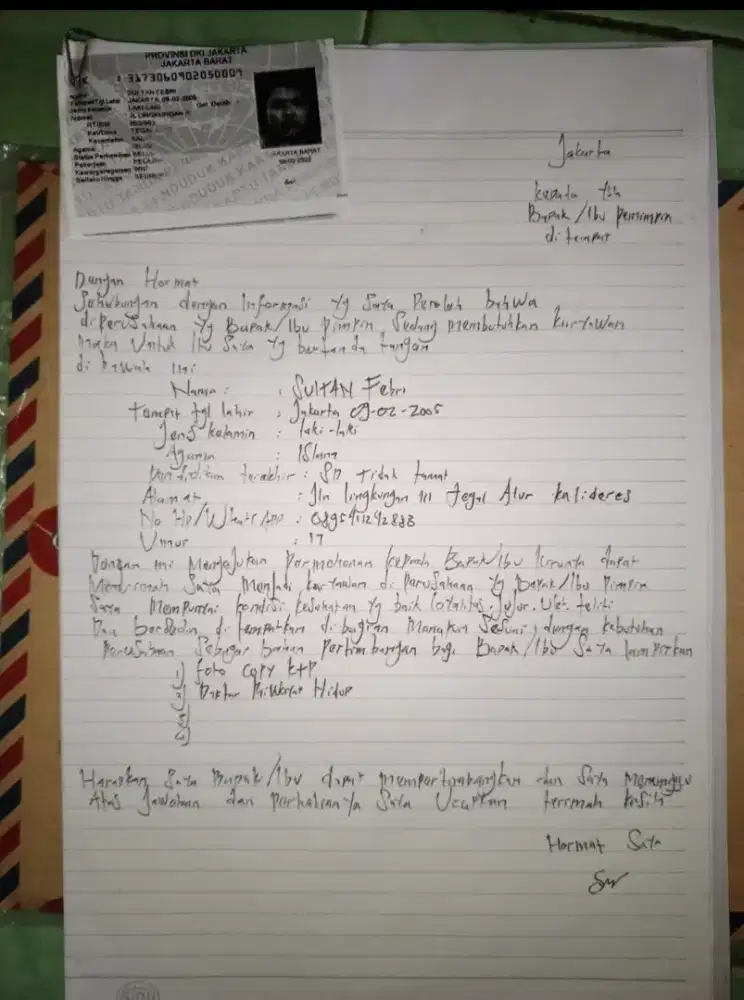 PROVINSI DKI JAKARTA
JAKARTA BARAT
NIK : 3173060902050009
Nama SULTAN FEBRI
Tempat/Tgl Lahir JAKARTA, 09-02-2005
Jenis Kelamin LAKI-LAKI Gol. Darah
Alamat JL LINGKUNGAN III
RT/RW
Kel/Desa TEGAL
Kecamatan
Agama ISLAM
Status Perkawinan BELUM
Pekerjaan PELAJAR
Kewarganegaraan WNI
Berlaku Hingga SEUMUR
JAKARTA BARAT
Jakarta
kepada yth
Bapak/Ibu pemimpin
di tempat
Dengan Hormat
Sehubungan dengan Informasi Yg Saya Peroleh bahwa
diperusahaan Yg Bapak/Ibu Pimpin Sedang membutuhkan karyawan
maka Untuk Itu Saya Yg bertanda tangan
di bawah Ini:
Nama : SULTAN Febri
Tempat tgl lahir : Jakarta 09-02-2005
Jenis kelamin : laki-laki
Agama : ISlam
Pendidikan terakhir : SD tidak tamat
Alamat : Jln lingkungan III tegal Alur kalideres
No Hp/WhatsApp : 089541292883
Umur : 17
Dengan ini Mengajukan Permohonan kepada Bapak/Ibu kiranya dapat
Menerimah Saya Menjadi karyawan di Perusahaan Yg Bapak/Ibu Pimpin
Saya Mempunyai kondisi kesehatan Yg baik loyalitas, Jujur, Ulet, teliti
Dan bersedia di tempatkan di bagian Manapun Sesuai dengan kebutuhan
Perusahaan Sebagai bahan Pertimbangan bagi Bapak/Ibu Saya lampirkan
1) foto copy KTP
2) Daftar Riwayat Hidup
3)
4)
Harapkan Saya Bapak/Ibu dapat mempertimbangkan dan Saya Menunggu
Atas Jawaban dan Perhatiannya Saya Ucapkan terimah kasih
Hormat Saya
SIDU